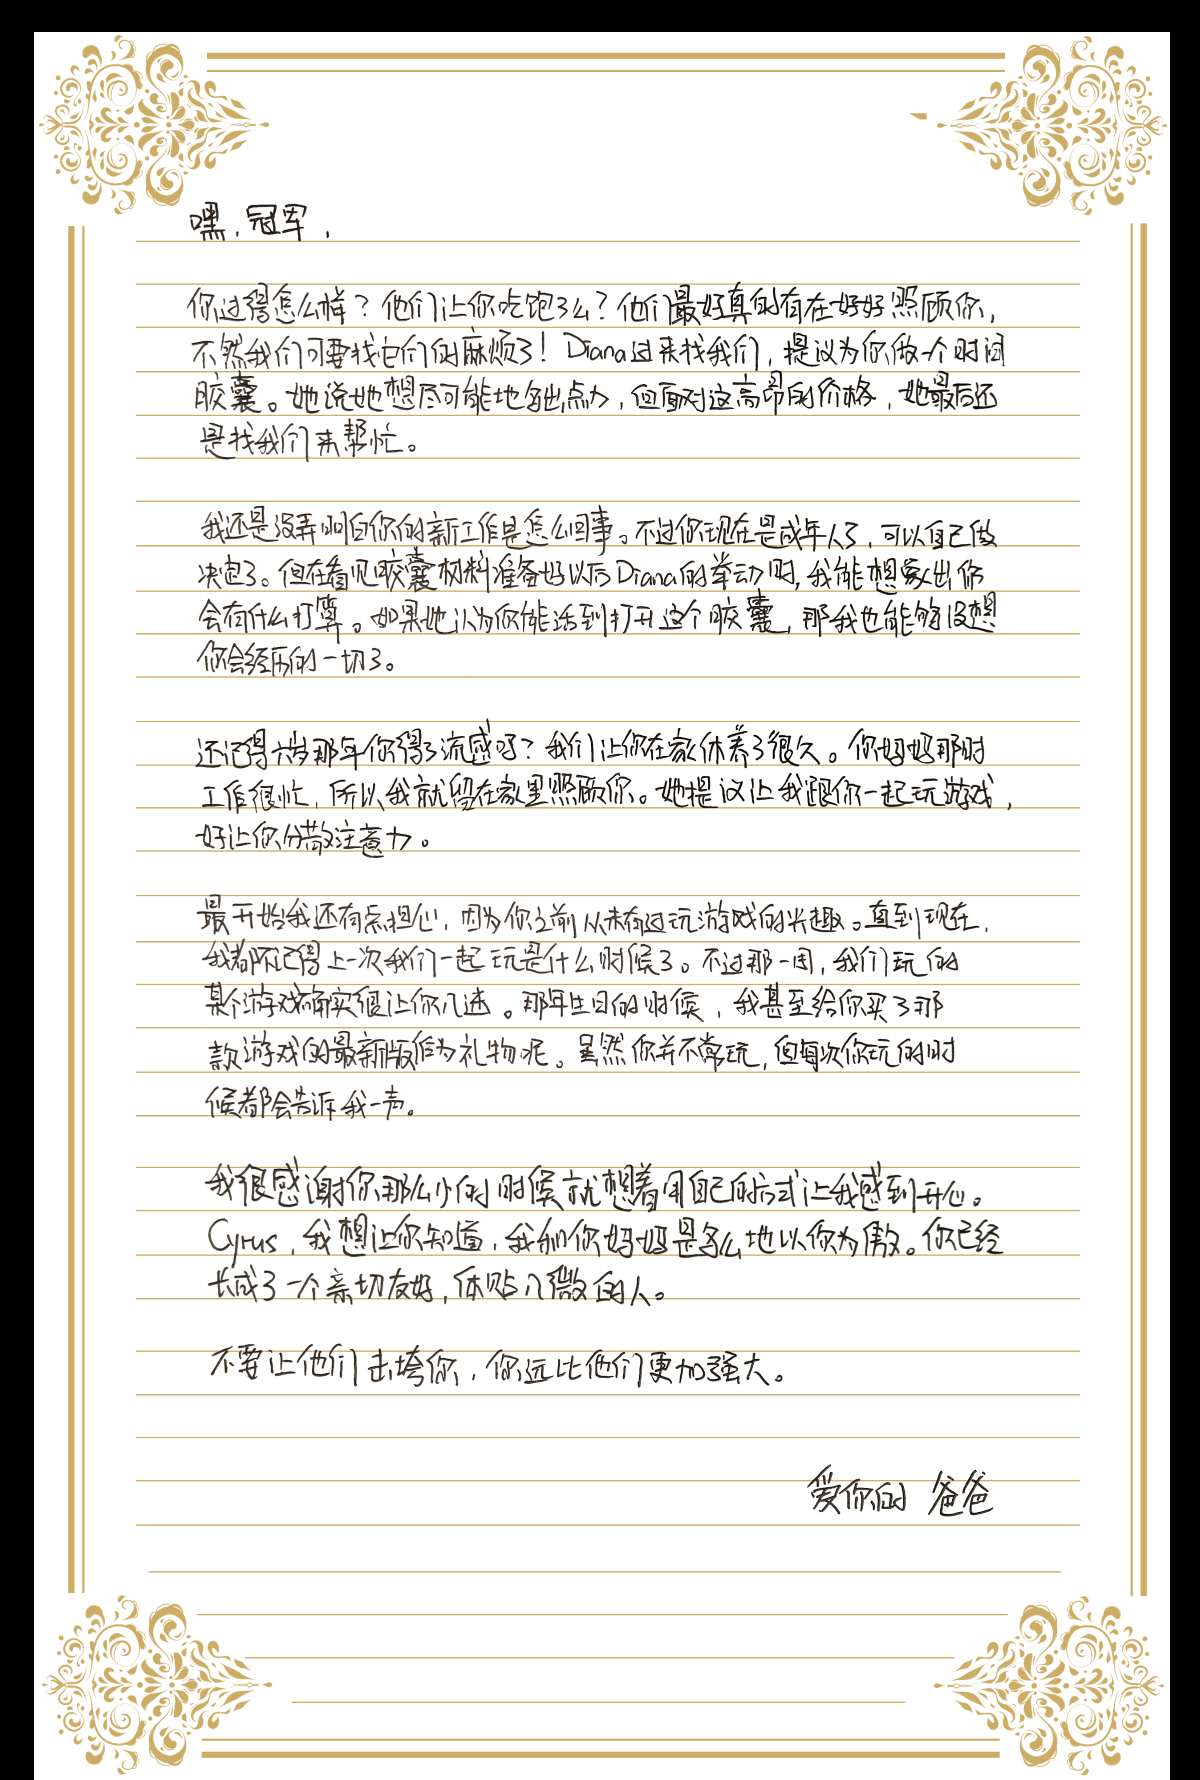 嘿，冠军，
你过得怎么样？他们让你吃饱了么？他们最好真的有在好好照顾你，
不然我们可要找它们的麻烦了！Diana过来找我们，提议为你做一个时间
胶囊。她说她想尽可能地多出点力，但面对这高昂的价格，她最后还
是找我们来帮忙。
我还是没弄明白你的新工作是怎么回事。不过你现在是成年人了，可以自己做
决定了。但在看见胶囊材料准备好以后Diana的举动时，我能想象出你
会有什么打算。如果她认为你能活到打开这个胶囊，那我也能够设想
你会经历的一切了。
还记得六岁那年你得了流感吗？我们让你在家休养了很久。你妈妈那时
工作很忙，所以我就留在家里照顾你。她提议让我跟你一起玩游戏，
好让你分散注意力。
最开始我还有点担心，因为你之前从未有过玩游戏的兴趣。直到现在，
我都不记得上一次我们一起玩是什么时候了。不过那一周，我们玩的
某个游戏确实很让你入迷。那年生日的时候，我甚至给你买了那
款游戏的最新版作为礼物呢。虽然你并不常玩，但每次你玩的时
候都会告诉我一声。
我很感谢你那么小的时候就想着用自己的方式让我感到开心。
Cyrus，我想让你知道，我和你妈妈是多么地以你为傲。你已经
长成了一个亲切友好，体贴入微的人。
不要让他们击垮你，你远比他们更加强大。
爱你的 爸爸